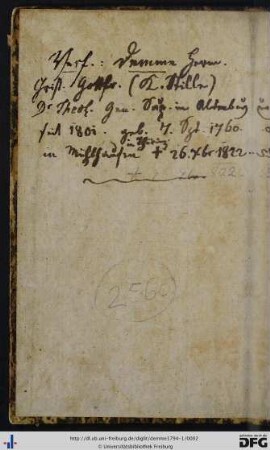 Verf.: Demme Herm.
Christ. Gottfr. (K. Stille)
Dr Theol. Gen. Sup. in Altenburg
seit 1801. geb. 7. Spt. 1760.
in Mühlhausen in Thüring + 26. Xbr 1822
2560
http://dl.ub.uni-freiburg.de/diglit/demme1794-1/0002
© Universitätsbibliothek Freiburg
DFG